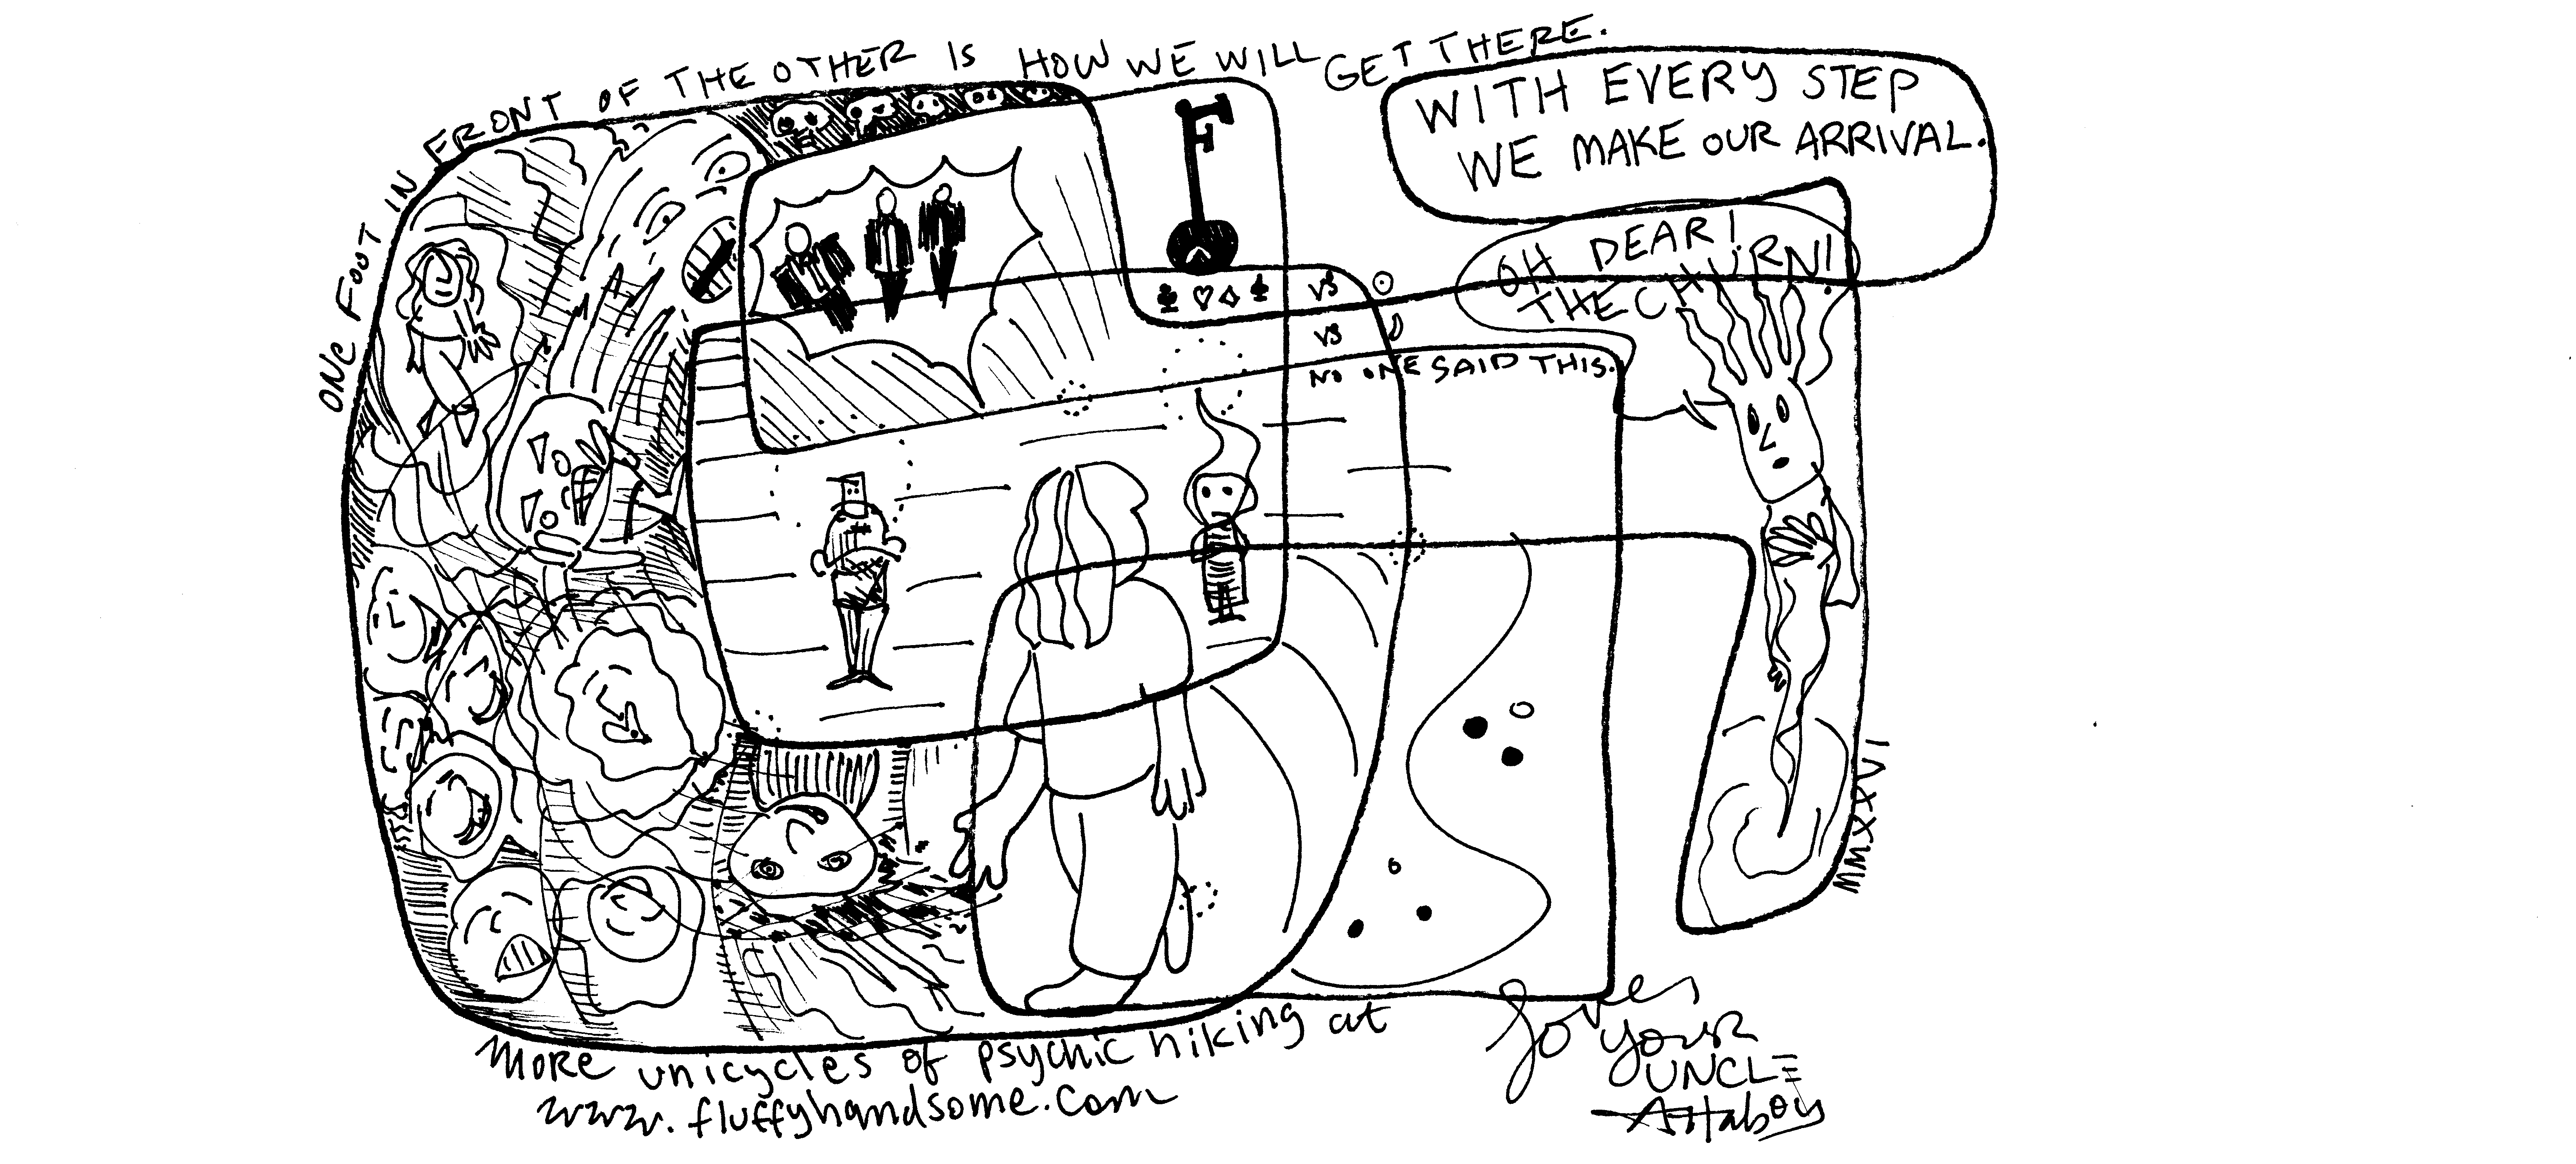 ONE FOOT IN FRONT OF THE OTHER IS HOW WE WILL GET THERE.
WITH EVERY STEP
WE MAKE OUR ARRIVAL.
OH DEAR!
THE CHURN!
VS
VS
NO ONE SAID THIS.
MMXXVI
MORE unicycles of psychic hiking at
www.fluffyhandsome.com
Loves
your
UNCLE
Attaboy